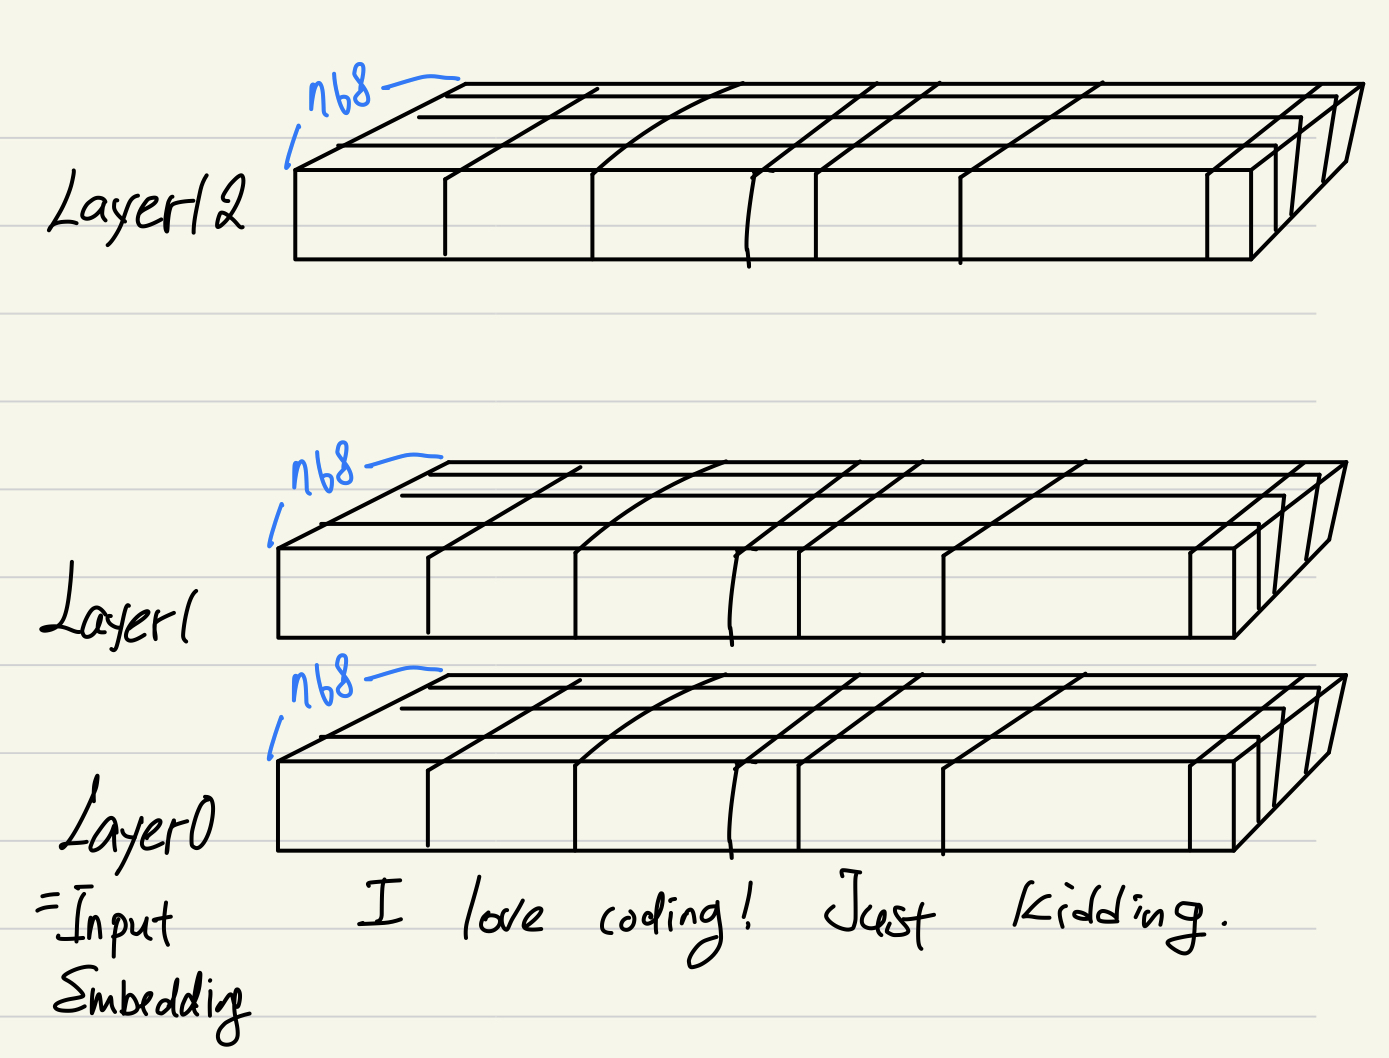 768
Layer12
768
Layer1
768
Layer0
=Input
Embedding
I love coding! Just Kidding.